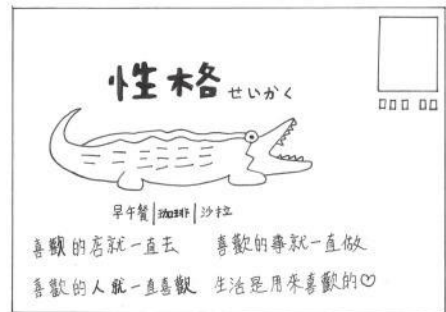 性格 せいかく
早午餐|珈琲|沙拉
喜歡的店就一直去 喜歡的事就一直做
喜歡的人就一直喜歡 生活是用來喜歡的♡